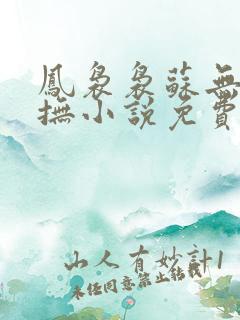 鳳裊裊蘇無
撫小說免費
山人有妙計1
未经同意禁止转载